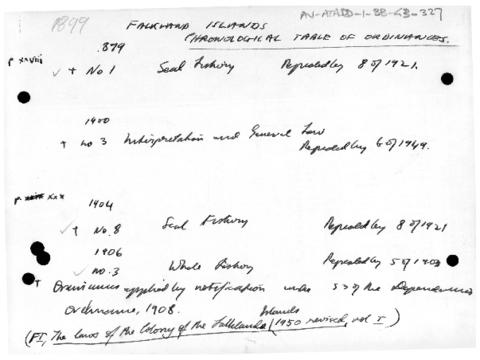 1899
AV-ATADD-1-38-43-327
FALKLAND ISLANDS
CHRONOLOGICAL TABLE OF ORDINANCES.
.899
p xxviii
✓ + No 1 Seal Fishery Repealed by 8 of 1921.
1900
+ no 3 Interpretation and General Law
Repealed by 6 of 1949.
p xxx
1904
✓ + No. 8 Seal Fishery Repealed by 8 of 1921
1906
✓ no. 3 Whale Fishery Repealed by 5 of 1908
+ Ordinances applied by notification under s 3 of the Dependencies
Ordinance, 1908.
(FI, The Laws of the Colony of the Falkland Islands (1950 revised, vol I)